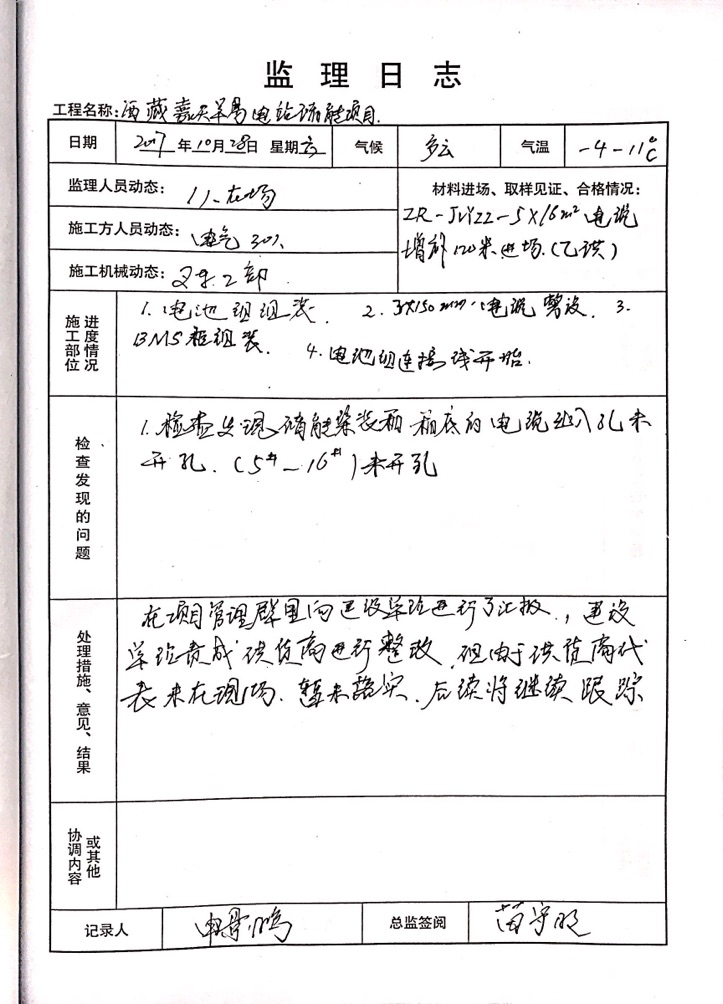 监理日志
工程名称:西藏嘉天羊易电站储能项目
日期 2017年10月28日 星期六 气候 多云 气温 -4-11℃
监理人员动态: 1人在场
材料进场、取样见证、合格情况:
ZR-JVY22-5×16m² 电缆
增补120米进场.(乙供)
施工方人员动态: 电气30人
施工机械动态: 叉车2部
施工部位 进度情况
1.电池组组装. 2. 3×150mm² 电缆敷设. 3.
BMS柜组装. 4.电池组连接线开始.
检查发现的问题
1.检查发现储能集装箱箱底的电缆进入孔未
开孔. (5#-16#)未开孔
处理措施、意见、结果
在项目管理群里向建设单位进行了汇报,建设
单位责成供货商进行整改,但由于供货商代
表未在现场.暂未落实.后续将继续跟踪
协调内容 或其他
记录人 总监签阅 苗守明